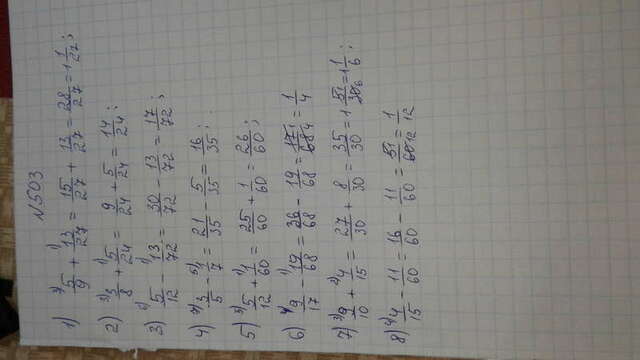 N503
1) 5/9 + 13/27 = 15/27 + 13/27 = 28/27 = 1 1/27;
2) 3/8 + 5/24 = 9/24 + 5/24 = 14/24;
3) 5/12 - 13/72 = 30/72 - 13/72 = 17/72;
4) 3/5 - 1/7 = 21/35 - 5/35 = 16/35;
5) 5/12 + 1/60 = 25/60 + 1/60 = 26/60;
6) 9/17 - 19/68 = 36/68 - 19/68 = 17/68 = 1/4
7) 9/10 + 4/15 = 27/30 + 8/30 = 35/30 = 1 5/30 = 1 1/6;
8) 4/15 - 11/60 = 16/60 - 11/60 = 5/60 = 1/12